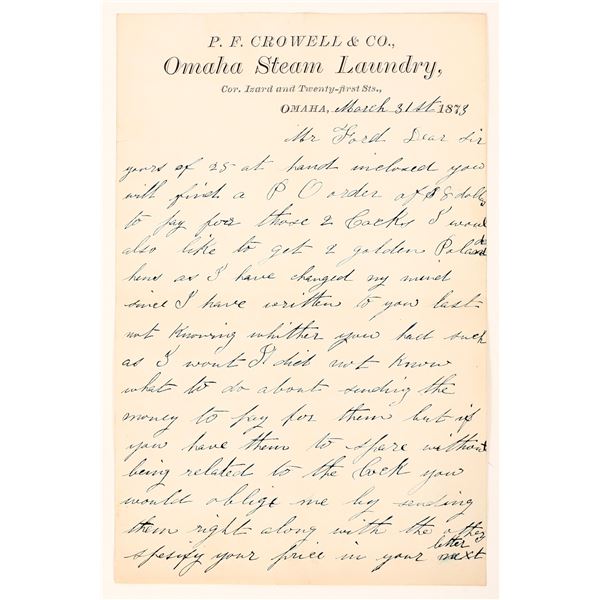 P. F. CROWELL & CO.,
Omaha Steam Laundry,
Cor. Izard and Twenty-first Sts.,
OMAHA, March 31st 1873
Mr Ford Dear Sir
yours of 25 at hand inclosed you
will find a P O order of $8 dollars
to pay for those 2 Cocks I would
also like to get 2 golden Poland
hens as I have changed my mind
since I have written to you last
not knowing whither you had such
as I wont I did not know
what to do about sending the
money to pay for them but if
you have them to spare without
being related to the Cock you
would oblige me by sending
them right along with the other
spesify your price in your next letter